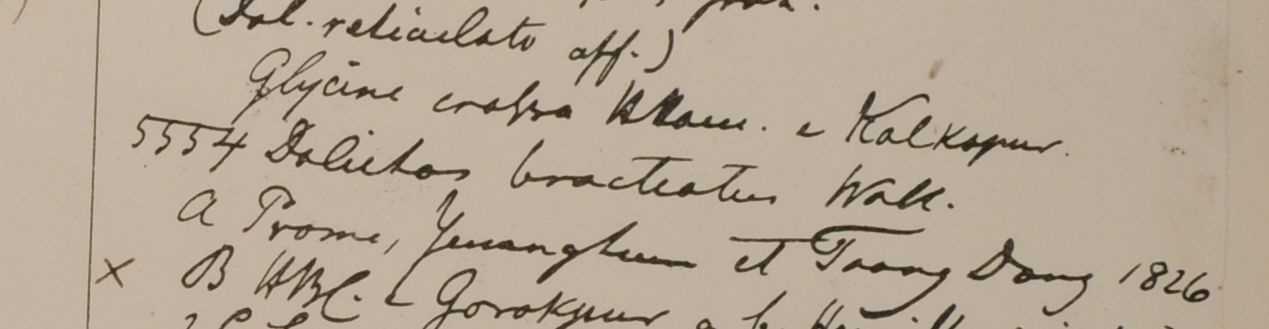 (Dol. reticulato aff.)
Glycine crassa Ham. e Kalkapur.
5554 Dolichos bracteatus Wall.
a Prome, Yenanghuen et Taong Dong 1826
× B HBC. e Gorokpur a b.